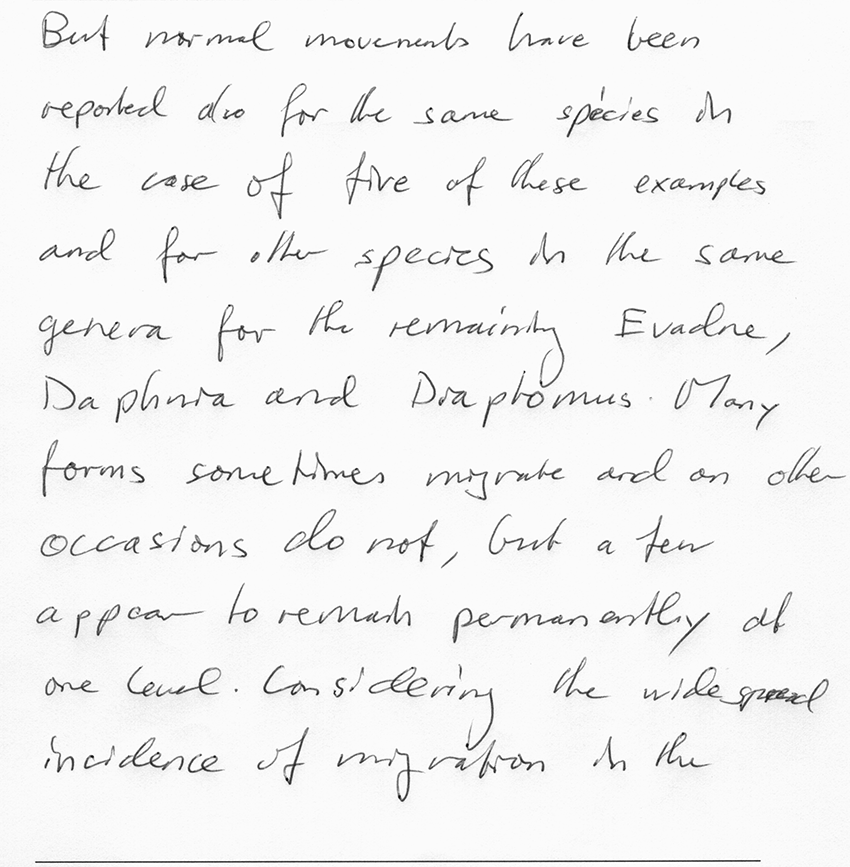 But normal movements have been
reported also for the same species in
the case of five of these examples
and for other species in the same
genera for the remaining Evadne,
Daphnia and Diaptomus. Many
forms sometimes migrate and on other
occasions do not, but a few
appear to remain permanently at
one level. Considering the widespread
incidence of migration in the